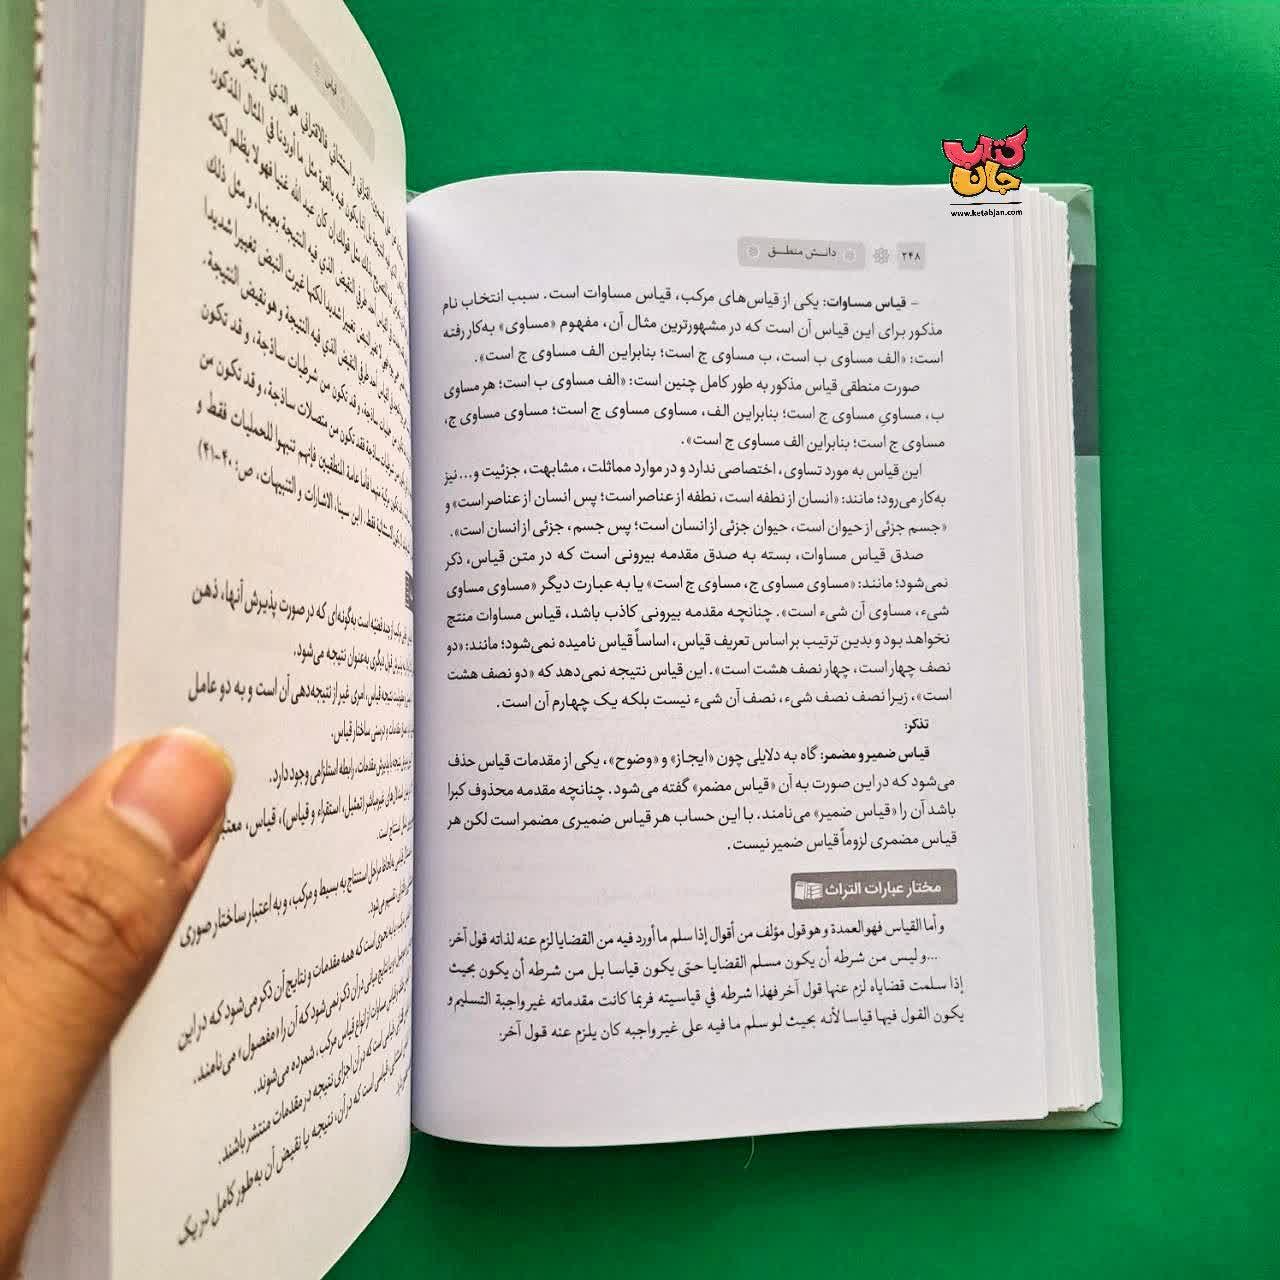 کتاب
جان
www.ketabjan.com
۲۴۸ دانش منطق
– قیاس مساوات: یکی از قیاس‌های مرکب، قیاس مساوات است. سبب انتخاب نام
مذکور برای این قیاس آن است که در مشهورترین مثال آن، مفهوم «مساوی» به‌کار رفته
است: «الف مساوی ب است، ب مساوی ج است؛ بنابراین الف مساوی ج است».
صورت منطقی قیاس مذکور به طور کامل چنین است: «الف مساوی ب است؛ هر مساوی
ب، مساویِ مساوی ج است؛ بنابراین الف، مساوی مساوی ج است؛ مساوی مساوی ج،
مساوی ج است؛ بنابراین الف مساوی ج است».
این قیاس به مورد تساوی، اختصاصی ندارد و در موارد مماثلت، مشابهت، جزئیت و... نیز
به‌کار می‌رود؛ مانند: «انسان از نطفه است، نطفه از عناصر است؛ پس انسان از عناصر است» و
«جسم جزئی از حیوان است، حیوان جزئی از انسان است؛ پس جسم، جزئی از انسان است».
صدق قیاس مساوات، بسته به صدق مقدمه بیرونی است که در متن قیاس، ذکر
نمی‌شود؛ مانند: «مساوی مساوی ج، مساوی ج است» یا به عبارت دیگر «مساوی مساوی
شیء، مساوی آن شیء است». چنانچه مقدمه بیرونی کاذب باشد، قیاس مساوات منتج
نخواهد بود و بدین ترتیب بر اساس تعریف قیاس، اساساً قیاس نامیده نمی‌شود؛ مانند: «دو
نصف چهار است، چهار نصف هشت است». این قیاس نتیجه نمی‌دهد که «دو نصف هشت
است»، زیرا نصف نصف شیء، نصف آن شیء نیست بلکه یک چهارم آن است.
تذکر:
قیاس ضمیر و مضمر: گاه به دلایلی چون «ایجاز» و «وضوح»، یکی از مقدمات قیاس حذف
می‌شود که در این صورت به آن «قیاس مضمر» گفته می‌شود. چنانچه مقدمه محذوف کبرا
باشد آن را «قیاس ضمیر» می‌نامند. با این حساب هر قیاس ضمیری مضمر است لکن هر
قیاس مضمری لزوماً قیاس ضمیر نیست.
مختار عبارات التراث
وأما القياس فهو العمدة وهو قول مؤلف من أقوال إذا سلم ما أورد فيه من القضايا لزم عنه لذاته قول آخر.
...وليس من شرطه أن يكون مسلم القضايا حتى يكون قياسا بل من شرطه أن يكون بحيث
إذا سلمت قضاياه لزم عنها قول آخر فهذا شرطه في قياسيته فربما كانت مقدماته غير واجبة التسليم و
يكون القول فيها قياسا لأنه بحيث لو سلم ما فيه على غير واجبه كان يلزم عنه قول آخر.
اقترانی و استثنائی فالاقتراني هو الذي لا يتعرض فيه
بالقوة مثل ما أوردنا في المثال المذكور؛
ان كان عبد الله غنيا فهو لا يظلم لكنه
الذي فيه النتيجة بعينها، و مثل ذلك
لكنها غيرت النبض تغييرا شديدا
النقيض الذي فيه النتيجة و هو نقيض النتيجة.
و قد تكون من شرطيات ساذجة، و قد تكون
فقد تكون من متصلات ساذجة، و قد تكون من
عامة المنطقيين فإنهم تنبهوا للحمليات فقط و
فقط. (ابن سینا، الاشارات و التنبیهات، ص: ۴۰-۴۱)
است به‌گونه‌ای که در صورت پذیرش آنها، ذهن
دیگری به‌عنوان نتیجه می‌شود.
نتیجه قیاس، امری غیر از نتیجه‌دهی آن است و به دو عامل
مقدمات و درستی ساختار قیاس.
مقدمات، رابطه استلزامی وجود دارد.
(تمثیل، استقراء و قیاس)، قیاس،
استنتاج به بسیط و مرکب، و به اعتبار ساختار صوری
تقسیم می‌شود.
است که همه مقدمات و نتایج آن ذکر می‌شود که در این
آن ذکر نمی‌شود که آن را «مفصول» می‌نامند.
از انواع قیاس مرکب، شمرده می‌شوند.
است که در آن اجزای نتیجه در مقدمات منتشر باشند.
قیاسی است که در آن، نتیجه یا نقیض آن به‌طور کامل در یک